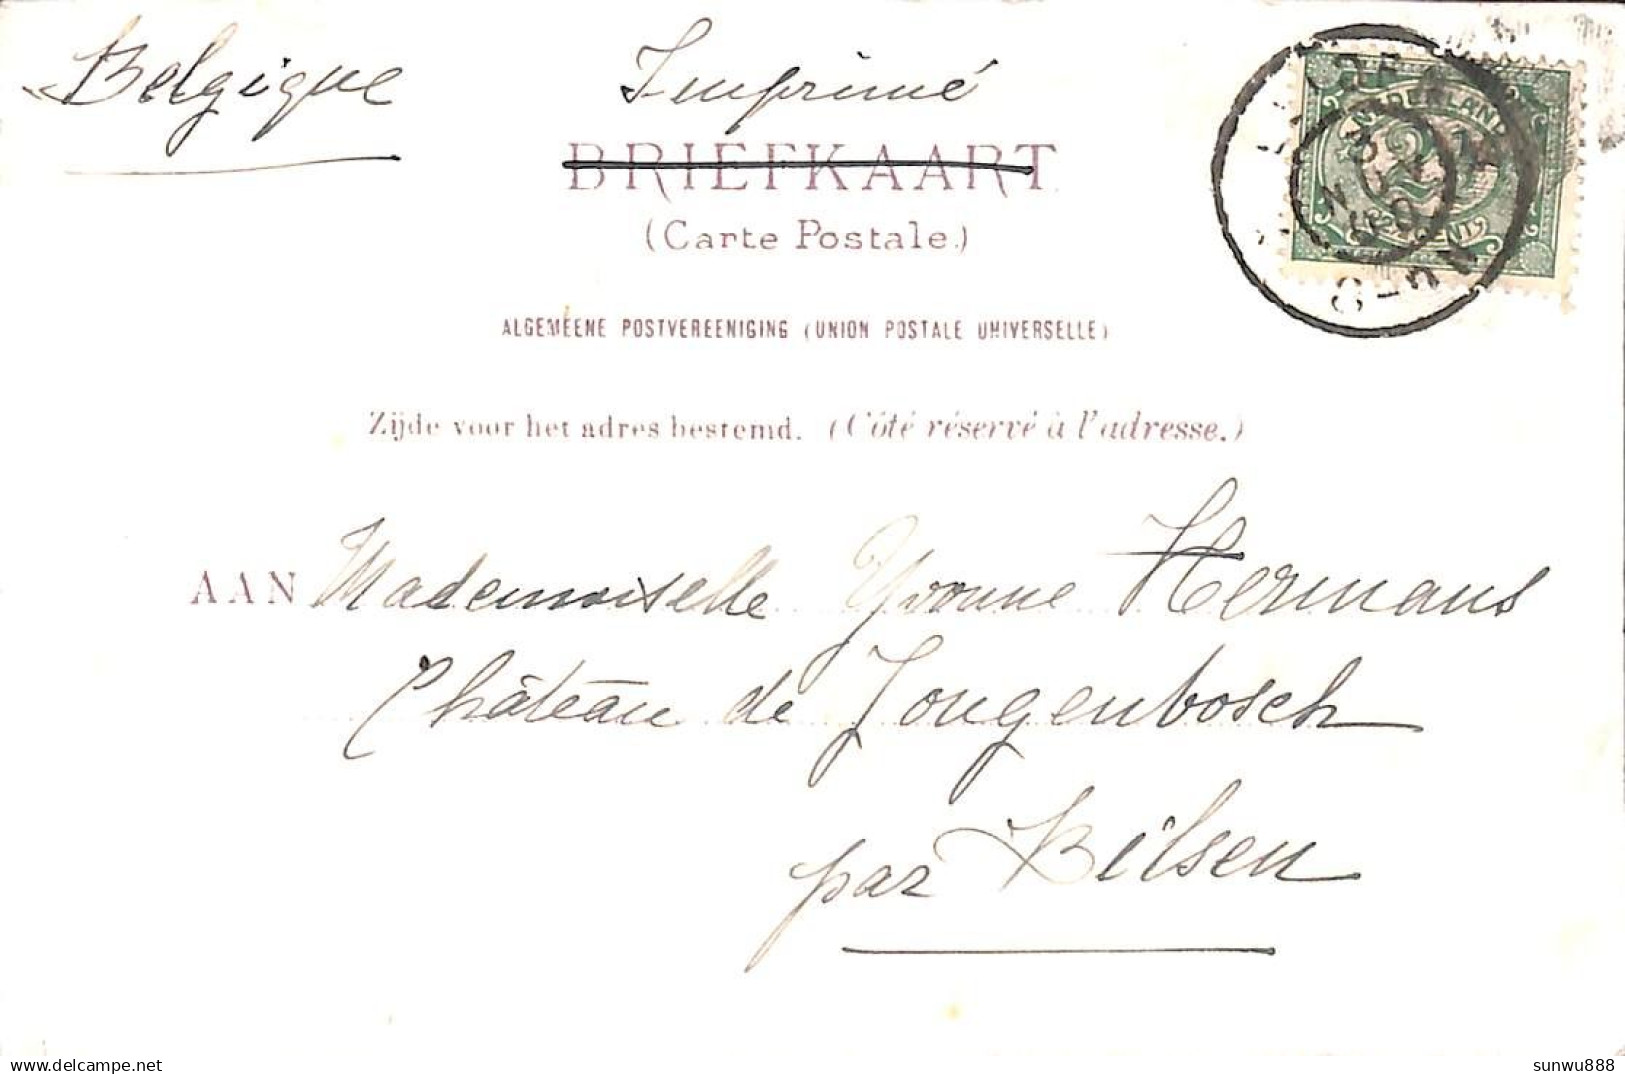 Belgique
Imprimé
BRIEFKAART
(Carte Postale.)
NEDERLAND
2½
CENT
ALGEMEENE POSTVEREENIGING (UNION POSTALE UNIVERSELLE)
Zijde voor het adres bestemd. (Côté réservé à l'adresse.)
AAN Mademoiselle Yvonne Hermans
Château de Jongenbosch
par Bilsen
delcampe.net
sunwu888